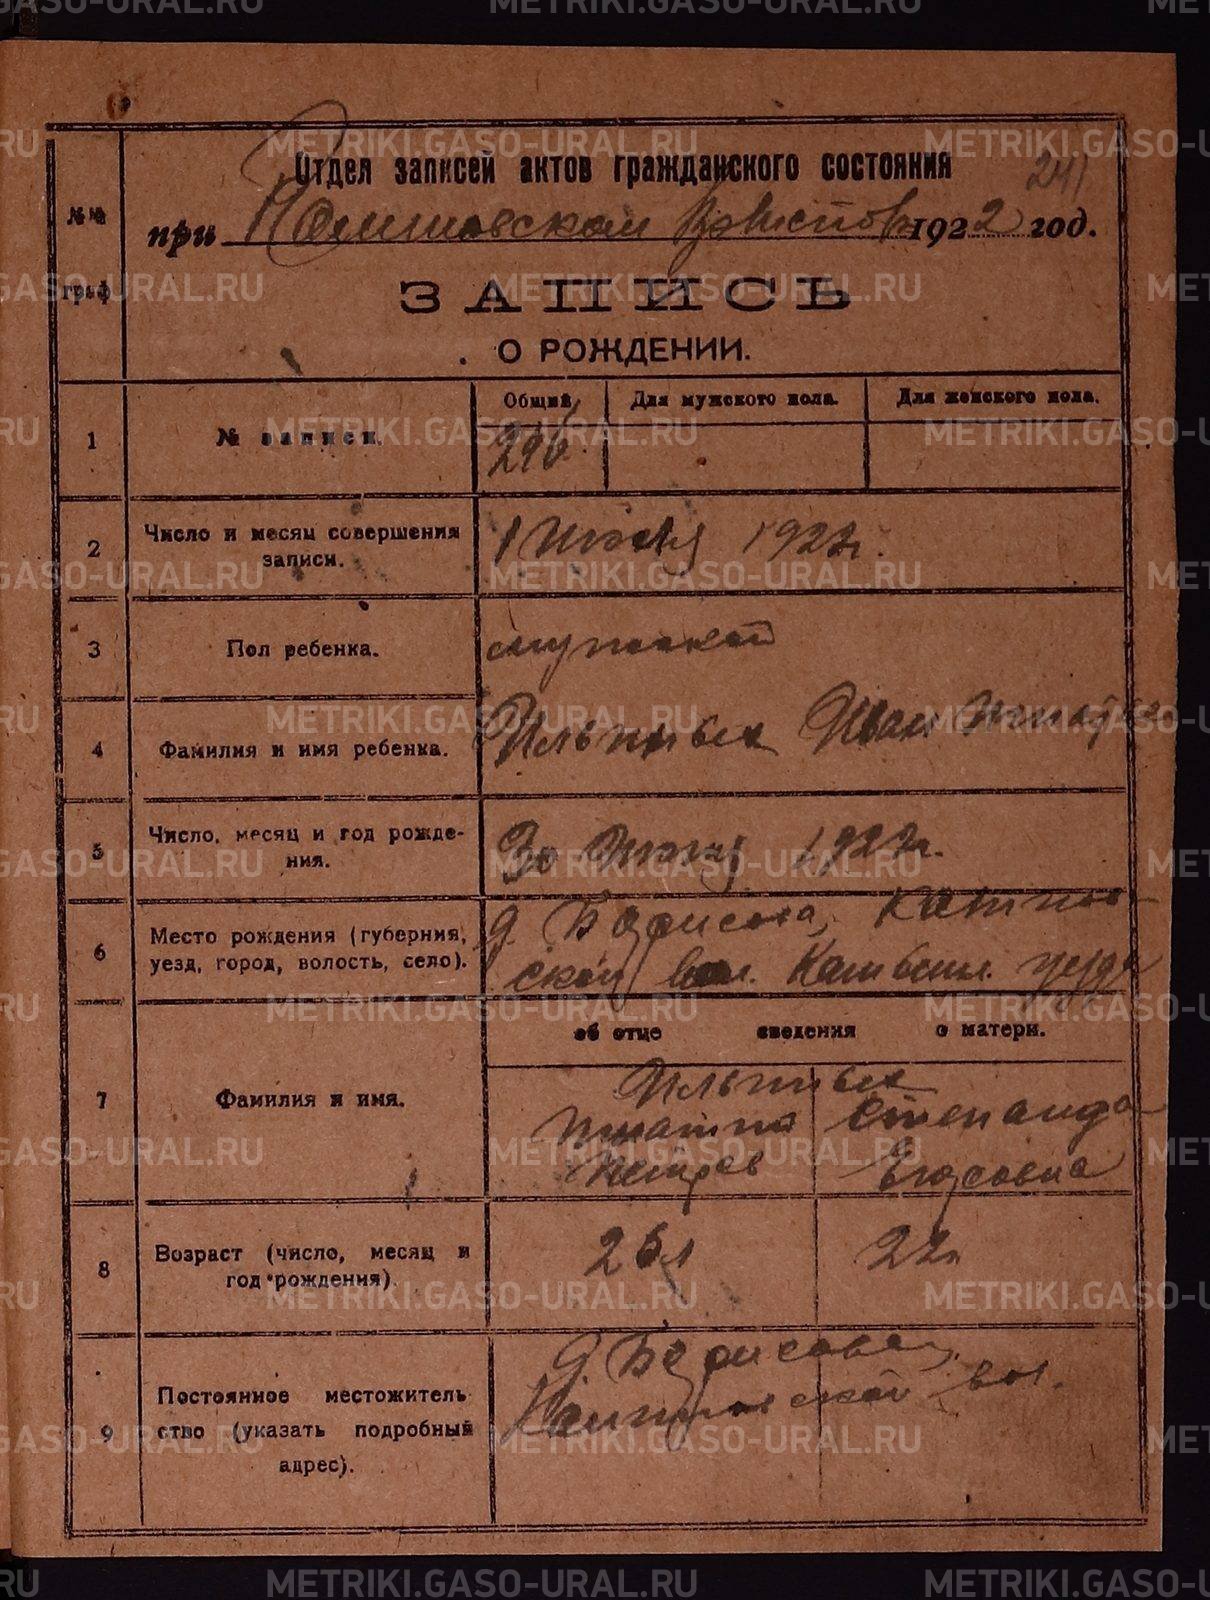 241
№№ граф
Отдел записей актов гражданского состояния
при 1922 год.
ЗАПИСЬ
О РОЖДЕНИИ.
Общий Для мужского пола. Для женского пола.
1 № записи. 296
2 Число и месяц совершения записи. 1 Июля 1922 г.
3 Пол ребенка. мужской
4 Фамилия и имя ребенка. Ильиных Иван
5 Число, месяц и год рождения. 30 1922 г.
6 Место рождения (губерния, уезд, город, волость, село). д. Борисова,
ской вол. уезда
об отце сведения о матери.
7 Фамилия и имя. Ильиных
Игнатий Степанида
Петров Егоровна
8 Возраст (число, месяц и год рождения). 22 л
9 Постоянное местожительство (указать подробный адрес). д. Борисова,
вол.
METRIKI.GASO-URAL.RU